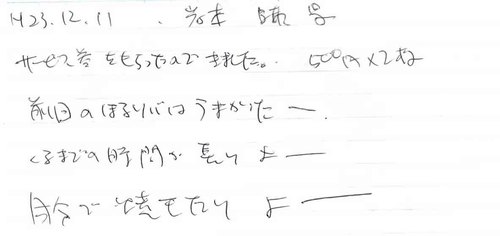 H23.12.11
サービス券をもらったので来ました。500円×2枚
前回のほるりバはうまかったー.
くるまでの時間が長いよー
自分で焼きたいよー